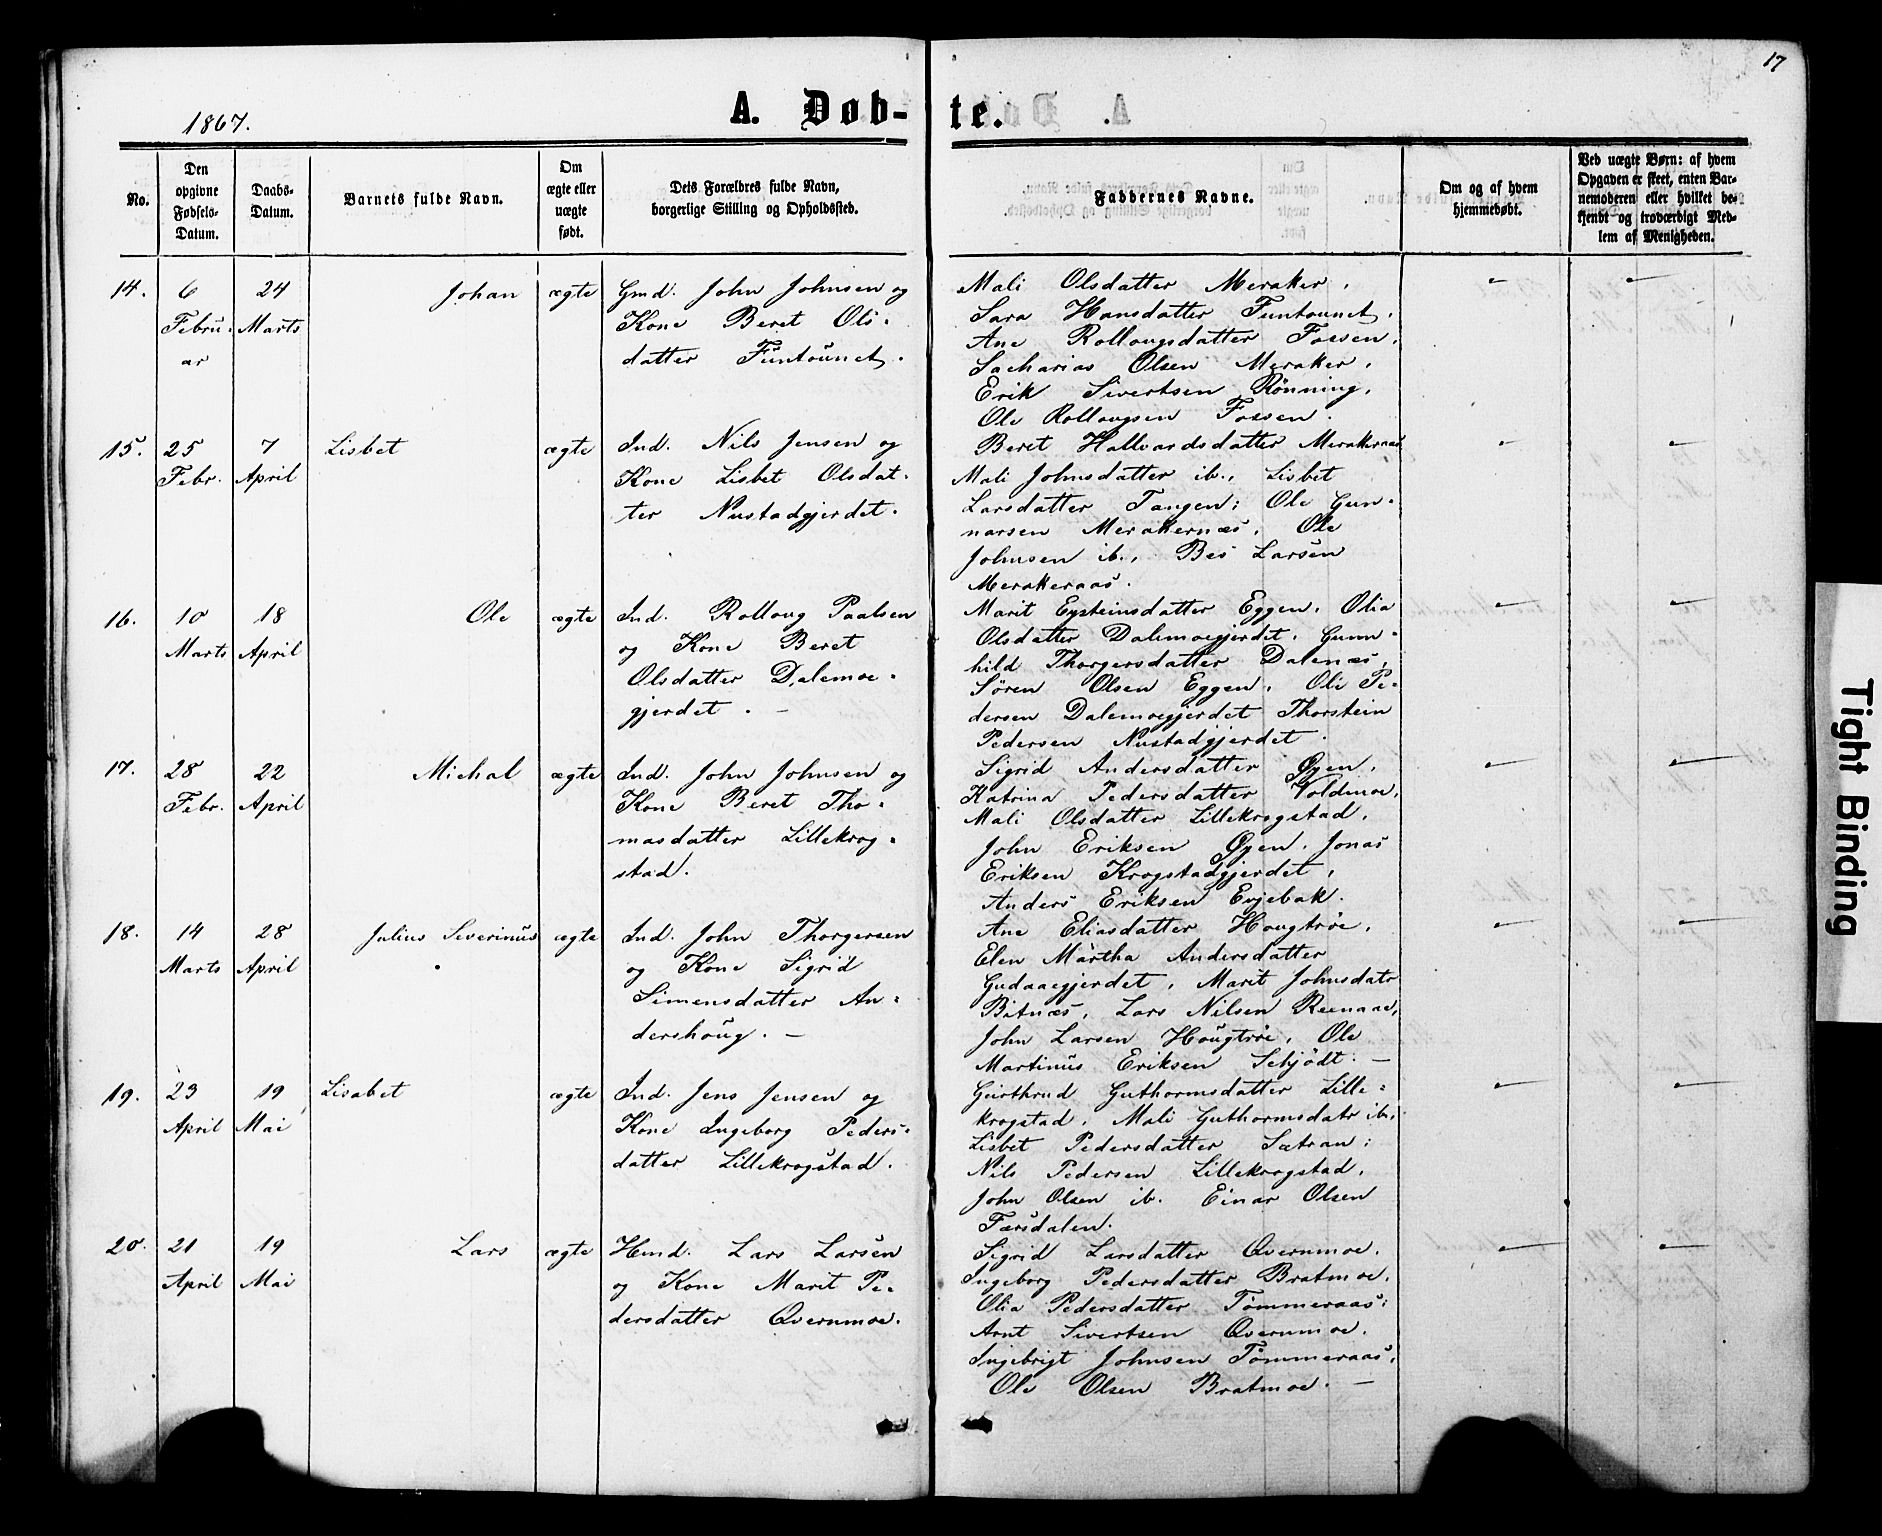 17
1867.
A. Døb-
te.
No.
Den
opgivne
Fødsels-
Datum.
Daabs-
Datum.
Barnets fulde Navn.
Om
ægte eller
uægte
født.
Dets Forældres fulde Navn,
borgerlige Stilling og Opholdssted.
Faddernes Navne.
Om og af hvem
hjemmedøbt.
Ved uægte Børn: af hvem
Opgaven er skeet, enten Bar-
nemoderen eller hvilket be-
kjendt og troværdigt Med-
lem af Menigheden.
14.
6
Febru-
ar
24
Marts
Johan
ægte
Gmd. John Johnsen og
Kone Beret Ols-
datter Funtounet.
Mali Olsdatter Meraker,
Sara Hansdatter Funtounet,
Ane Rollougsdatter Fossen,
Sacharias Olsen Meraker,
Erik Sivertsen Rönning,
Ole Rollougsen Fossen.
15.
25
Febr.
7
April
Lisbet
ægte
Ind. Nils Jensen og
Kone Lisbet Olsdat-
ter Nustadgjerdet.
Beret Hallvardsdatter Merakeraas
Mali Johnsdatter ib., Lisbet
Larsdatter Tangen; Ole Gun-
narsen Merakernæs, Ole
Johnsen ib., Bes Larsen
Merakeraas.
16.
10
Marts
18
April
Ole
ægte
Ind. Rolloug Paalsen
og Kone Beret
Olsdatter Dalemoe-
gjerdet. -
Marit Eysteinsdatter Eggen, Olia
Olsdatter Dalemoegjerdet, Gunn-
hild Thorgersdatter Dalenæs,
Søren Olsen Eggen, Ole Pe-
dersen Dalemoegjerdet Thorstein
Pedersen Nustadgjerdet.
17.
28
Febr.
22
April
Michal
ægte
Ind. John Johnsen og
Kone Beret Tho-
masdatter Lillekrog-
stad.
Sigrid Andersdatter Øyen,
Katrina Pedersdatter Voldmoe,
Mali Olsdatter Lillekrogstad,
John Eriksen Øyen, Jonas
Eriksen Krogstadgjerdet,
Anders Eriksen Evjebak.
18.
14
Marts
28
April
Julius Severinus
ægte
Ind. John Thorgersen
og Kone Sigrid
Simensdatter An-
dershoug. -
Ane Eliasdatter Hougtrøe,
Elen Martha Andersdatter
Gudaaegjerdet, Marit Johnsdatr
Bitnæs, Lars Nilsen Reenaae,
John Larsen Hougtrøe, Ole
Martinus Eriksen Schjödt. -
19.
23
April
19
Mai
Lisabet
ægte
Ind. Jens Jensen og
Kone Ingeborg Peders-
datter Lillekrogstad.
Gurthrud Guthormsdatter Lille-
krogstad, Mali Guthormsdatr ib,
Lisbet Pedersdatter Sætran;
Nils Pedersen Lillekrogstad,
John Olsen ib. Einar Olsen
Færsdalen.
20.
21
April
19
Mai
Lars
ægte
Hmd. Lars Larsen
og Kone Marit Pe-
dersdatter Qvernmoe.
Sigrid Larsdatter Qvernmoe,
Ingeborg Pedersdatter Bratmoe,
Olia Pedersdatter Tömmeraas;
Arnt Sivertsen Qvernmoe.
Ingebrigt Johnsen Tömmeraas,
Ole Olsen Bratmoe. -
Tight Binding